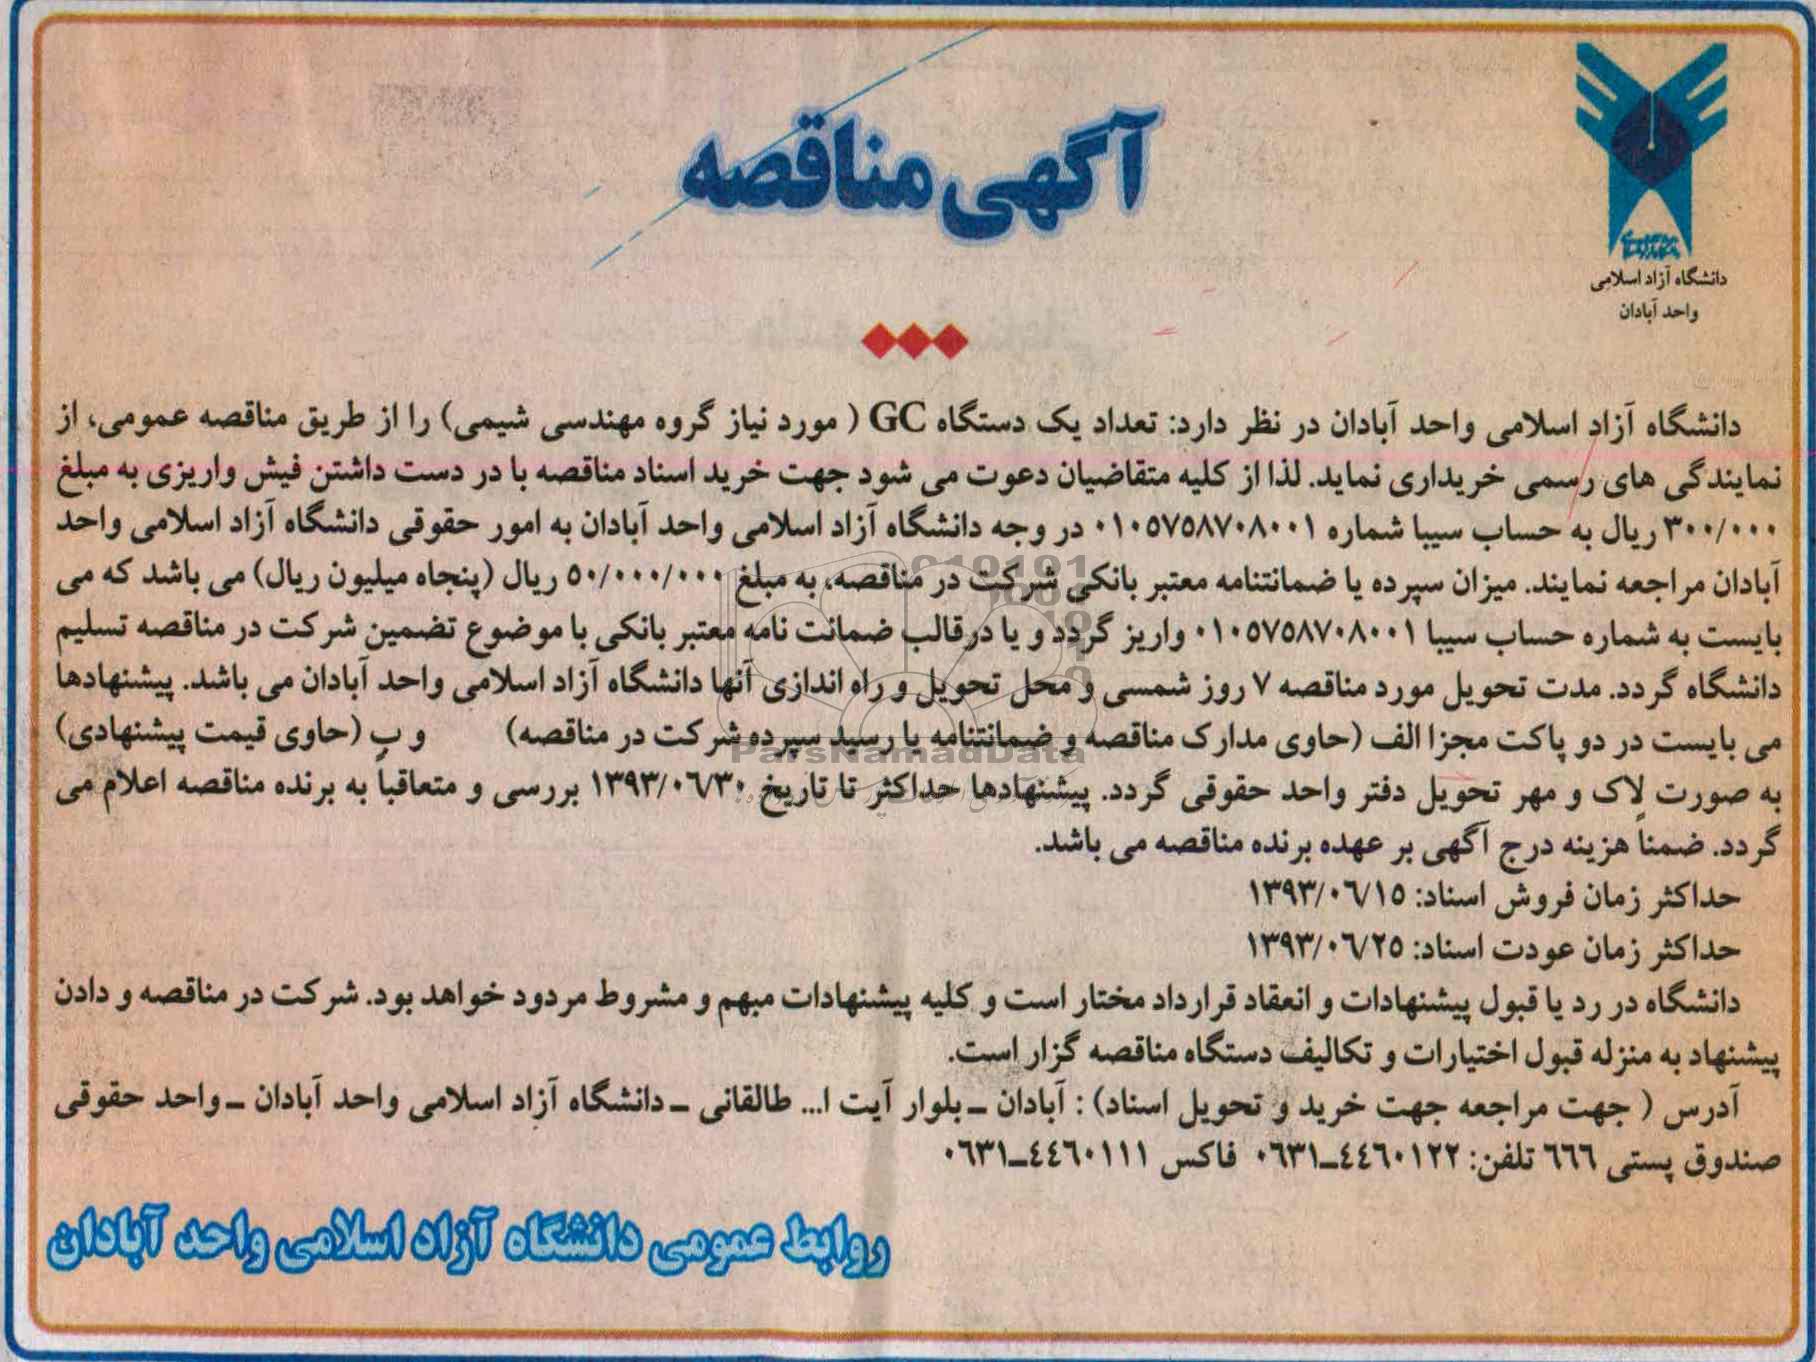 دانشگاه آزاد اسلامی
واحد آبادان
آگهی مناقصه
دانشگاه آزاد اسلامی واحد آبادان در نظر دارد: تعداد یک دستگاه GC ( مورد نیاز گروه مهندسی شیمی) را از طریق مناقصه عمومی، از
نمایندگی های رسمی خریداری نماید. لذا از کلیه متقاضیان دعوت می شود جهت خرید اسناد مناقصه با در دست داشتن فیش واریزی به مبلغ
۳۰۰/۰۰۰ ریال به حساب سیبا شماره ۰۱۰۵۷۵۸۷۰۸۰۰۱ در وجه دانشگاه آزاد اسلامی واحد آبادان به امور حقوقی دانشگاه آزاد اسلامی واحد
آبادان مراجعه نمایند. میزان سپرده یا ضمانتنامه معتبر بانکی شرکت در مناقصه، به مبلغ ۵۰/۰۰۰/۰۰۰ ریال (پنجاه میلیون ریال) می باشد که می
بایست به شماره حساب سیبا ۰۱۰۵۷۵۸۷۰۸۰۰۱ واریز گردد و یا درقالب ضمانت نامه معتبر بانکی با موضوع تضمین شرکت در مناقصه تسلیم
دانشگاه گردد. مدت تحویل مورد مناقصه ۷ روز شمسی و محل تحویل و راه اندازی آنها دانشگاه آزاد اسلامی واحد آبادان می باشد. پیشنهادها
می بایست در دو پاکت مجزا الف (حاوی مدارک مناقصه و ضمانتنامه یا رسید سپرده شرکت در مناقصه) و ب (حاوی قیمت پیشنهادی)
به صورت لاک و مهر تحویل دفتر واحد حقوقی گردد. پیشنهادها حداکثر تا تاریخ ۱۳۹۳/۰۶/۳۰ بررسی و متعاقباً به برنده مناقصه اعلام می
گردد. ضمناً هزینه درج آگهی بر عهده برنده مناقصه می باشد.
حداکثر زمان فروش اسناد: ۱۳۹۳/۰۶/۱۵
حداکثر زمان عودت اسناد: ۱۳۹۳/۰۶/۲۵
دانشگاه در رد یا قبول پیشنهادات و انعقاد قرارداد مختار است و کلیه پیشنهادات مبهم و مشروط مردود خواهد بود. شرکت در مناقصه و دادن
پیشنهاد به منزله قبول اختیارات و تکالیف دستگاه مناقصه گزار است.
آدرس ( جهت مراجعه جهت خرید و تحویل اسناد) : آبادان ـ بلوار آیت ا... طالقانی ـ دانشگاه آزاد اسلامی واحد آبادان ـ واحد حقوقی
صندوق پستی ۶۶۶ تلفن: ۴۴۶۰۱۲۲ـ۰۶۳۱ فاکس ۴۴۶۰۱۱۱ـ۰۶۳۱
روابط عمومی دانشگاه آزاد اسلامی واحد آبادان
ParsNamadData